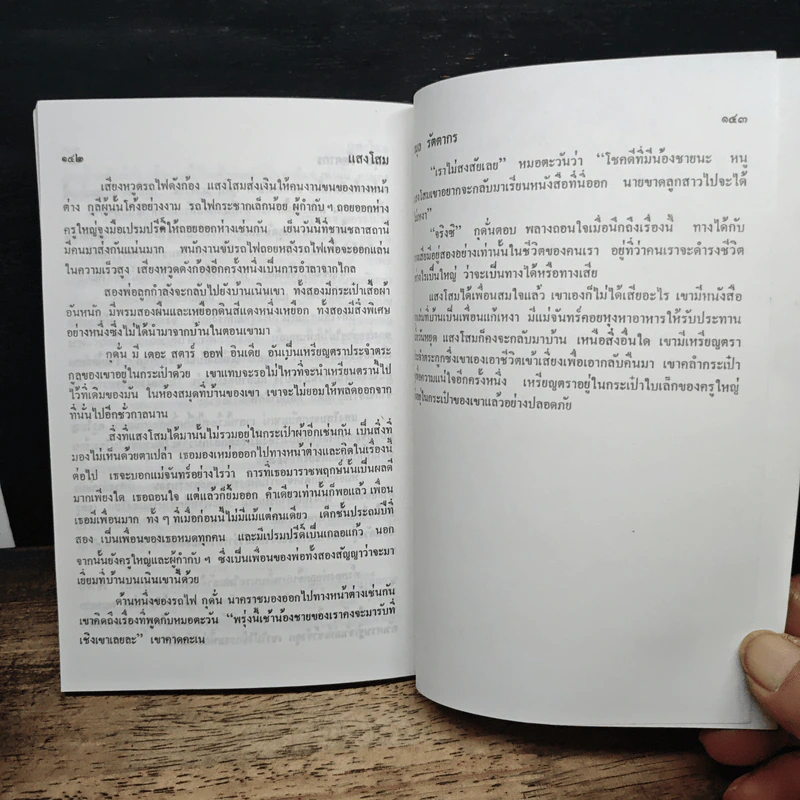 ๑๔๒ แสงโสม
เสียงหวูดรถไฟดังก้อง แสงโสมส่งเงินให้คนงานขนของทางหน้า
ต่าง กุลีผู้นั้นโค้งอย่างงาม รถไฟกระชากเล็กน้อย ผู้กำกับฯ ถอยออกห่าง
ครูใหญ่จูงมือเปรมปรีดิ์ให้ถอยออกห่างเช่นกัน เย็นวันนี้ที่ชานชลาสถานี
มีคนมาส่งกันแน่นมาก พนักงานขับรถไฟถอยหลังรถไฟเพื่อจะออกแล่น
ในความเร็วสูง เสียงหวูดดังก้องอีกครั้งหนึ่งเป็นการอำลาจากไกล
สองพ่อลูกกำลังจะกลับไปยังบ้านเนินเขา ทั้งสองมีกระเป๋าเสื้อผ้า
อันหนัก มีพรมสองผืนและเหยือกดินสีแดงหนึ่งเหยือก ทั้งสองมีสิ่งพิเศษ
อย่างหนึ่งซึ่งไม่ได้นำมาจากบ้านในตอนเขามา
กุดั่น มี เดอะ สตาร์ ออฟ อินเดีย อันเป็นเหรียญตราประจำตระ
กูลของเขาอยู่ในกระเป๋าด้วย เขาแทบจะรอไม่ไหวที่จะนำเหรียญตรานี้ไป
ไว้ที่เดิมของมัน ในห้องสมุดที่บ้านของเขา เขาจะไม่ยอมให้พลัดออกจาก
ที่นั้นไปอีกชั่วกาลนาน
สิ่งที่แสงโสมได้มานั้นไม่รวมอยู่ในกระเป๋าผ้าอีกเช่นกัน เป็นสิ่งที่
มองไม่เห็นด้วยตาเปล่า เธอมองเหม่อออกไปทางหน้าต่างและคิดในเรื่องนี้
ต่อไป เธอจะบอกแม่จันทร์อย่างไรว่า การที่เธอมาราชพฤกษ์นั้นเป็นผลดี
มากเพียงใด เธอถอนใจ แต่แล้วก็ยิ้มออก คำเดียวเท่านั้นก็พอแล้ว เพื่อน
เธอมีเพื่อนมาก ทั้ง ๆ ที่เมื่อก่อนนี้ไม่มีแม้แต่คนเดียว เด็กชั้นประถมปีที่
สอง เป็นเพื่อนของเธอหมดทุกคน และมีเปรมปรีดิ์เป็นเกลอแก้ว นอก
จากนั้นยังครูใหญ่และผู้กำกับ ๆ ซึ่งเป็นเพื่อนของพ่อทั้งสองสัญญาว่าจะมา
เยี่ยมที่บ้านบนเนินเขานี้ด้วย
ด้านหนึ่งของรถไฟ กุดั่น นาคราชมองออกไปทางหน้าต่างเช่นกัน
เขาคิดถึงเรื่องที่พูดกับหมอตะวัน “พรุ่งนี้เช้าน้องชายของเราคงจะมารับที่
เชิงเขาเลยละ” เขาคาดคะเน
รัตตากร ๑๔๓
“เราไม่สงสัยเลย” หมอตะวันว่า “โชคดีที่มีน้องชายนะ หนู
โสมเขาอยากจะกลับมาเรียนหนังสือที่นี่ออก นายขาดลูกสาวไปจะได้
“จริงซิ” กุดั่นตอบ พลางถอนใจเมื่อนึกถึงเรื่องนี้ ทางได้กับ
เสียมีอยู่สองอย่างเท่านั้นในชีวิตของคนเรา อยู่ที่ว่าคนเราจะดำรงชีวิต
ไรเป็นใหญ่ ว่าจะเป็นทางได้หรือทางเสีย
แสงโสมได้เพื่อนสมใจแล้ว เขาเองก็ไม่ได้เสียอะไร เขามีหนังสือ
ที่บ้านเป็นเพื่อนแก้เหงา มีแม่จันทร์คอยหุงหาอาหารให้รับประทาน
วันหยุด แสงโสมก็คงจะกลับมาบ้าน เหนือสิ่งอื่นใด เขามีเหรียญตรา
ตระกูลซึ่งเขาเองเอาชีวิตเข้าเสี่ยงเพื่อเอากลับคืนมา เขาคลำกระเป๋า
ความแน่ใจอีกครั้งหนึ่ง เหรียญตราอยู่ในกระเป๋าใบเล็กของครูใหญ่
ในกระเป๋าของเขาแล้วอย่างปลอดภัย